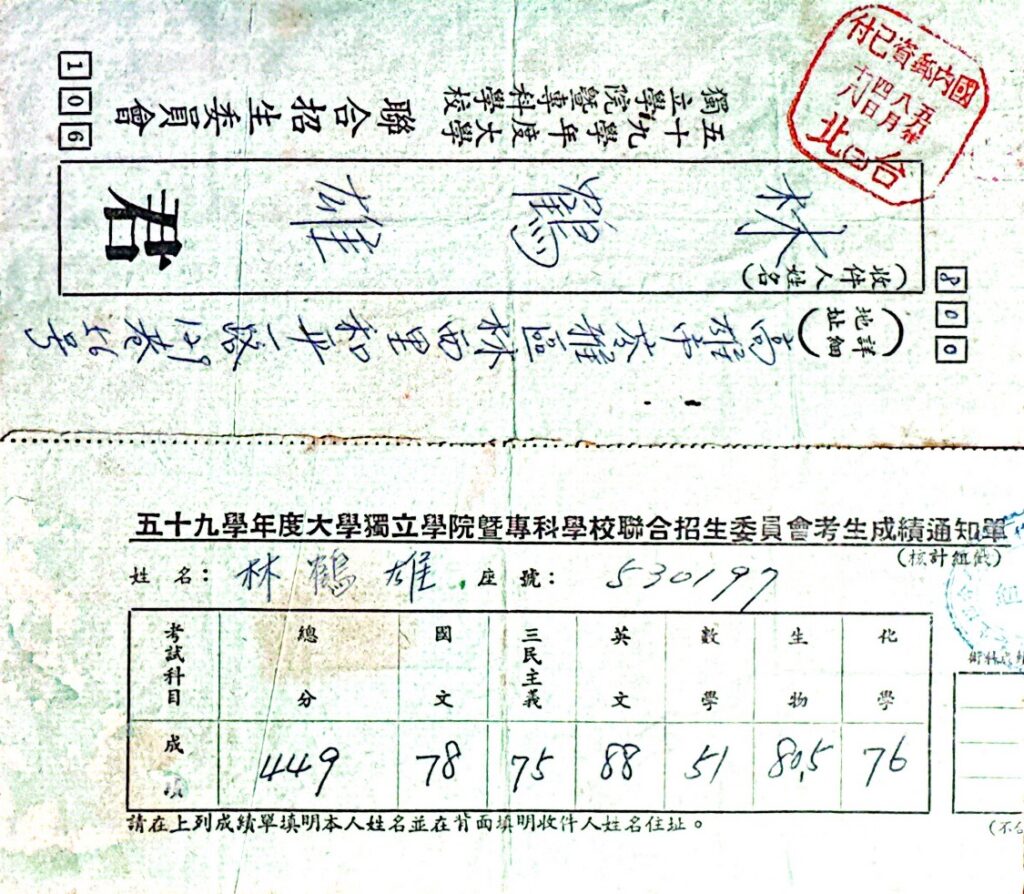 106
五十九學年度大學
獨立學院暨專科學校
聯合招生委員會
國內郵資已付
五九年八月
四十八日
台(二)北
林鶴雄 君
(收件人姓名)
800
(詳細地址)
高雄市苓雅區林西里和平一路
五十九學年度大學獨立學院暨專科學校聯合招生委員會考生成績通知單
(核計組戳)
姓 名: 林鶴雄 座 號: 530197
考試科目 總分 國文 三民主義 英文 數學 生物 化學
成績 449 78 75 88 51 80.5 76
請在上列成績單填明本人姓名並在背面填明收件人姓名住址。
組